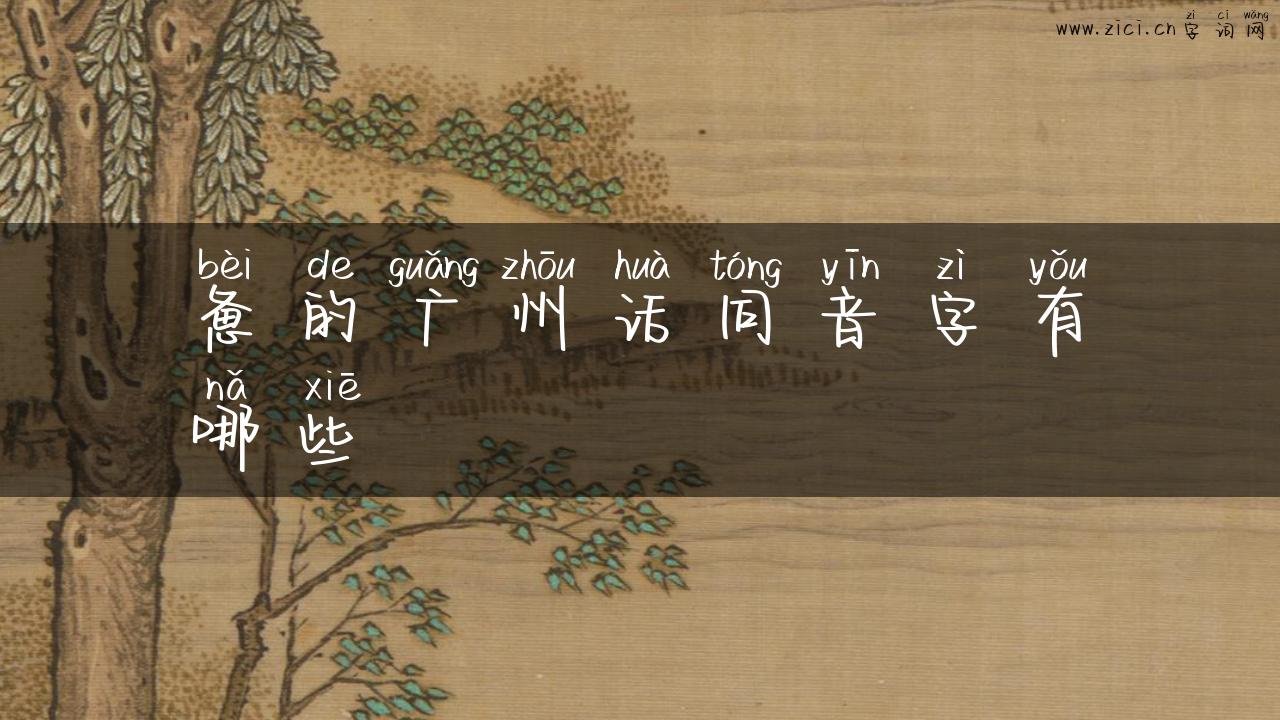 zì cí wǎng
www.zici.cn 字词网
bèi de guǎng zhōu huà tóng yīn zì yǒu
惫的广州话同音字有
nǎ xiē
哪些